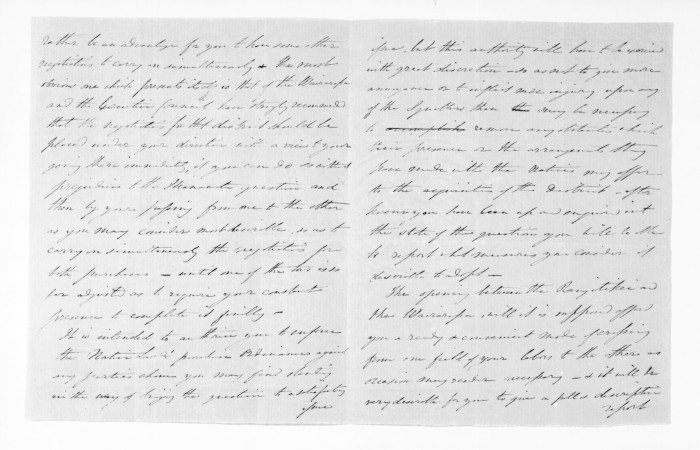 rather be an advantage for you to have some other
negotiation to carry on simultaneously & the most
obvious one which presents itself is that of the Wairarapa
and the Executive Council have strongly recommended
that the negotiation for that district should be
placed under your direction with a view to your
going there immediately, if you can do so without
prejudice to the Manawatu question and
then by your passing from one to the other
as you may consider most desirable, so as to
carry on simultaneously the negotiation for
both purchases – until one of the two is so
far adjusted as to require your constant
presence to complete it finally –
It is intended to authorize you to enforce
the Native Land purchase Ordinance against
any parties whom you may find standing
in the way of bringing the question to a satisfactory
issue
issue, but this authority will have to be exercised
with great discretion & so as not to give more
annoyance or to inflict more injury upon any
of the Squatters than the may be necessary
to accomplish remove any obstacles which
their presence or the arrangements they
have made with the Natives may offer
to the acquisition of the District. After
however you have been up and enquired into
the state of this question you will be able
to report what measures you consider it
desirable to adopt –
The opening between the Rangitikei and
the Wairarapa will it is supposed afford
you a ready & convenient mode of crossing
from one field of your labors to the other as
occasion may render necessary – & it will be
very desirable for you to give a full & descriptive
report